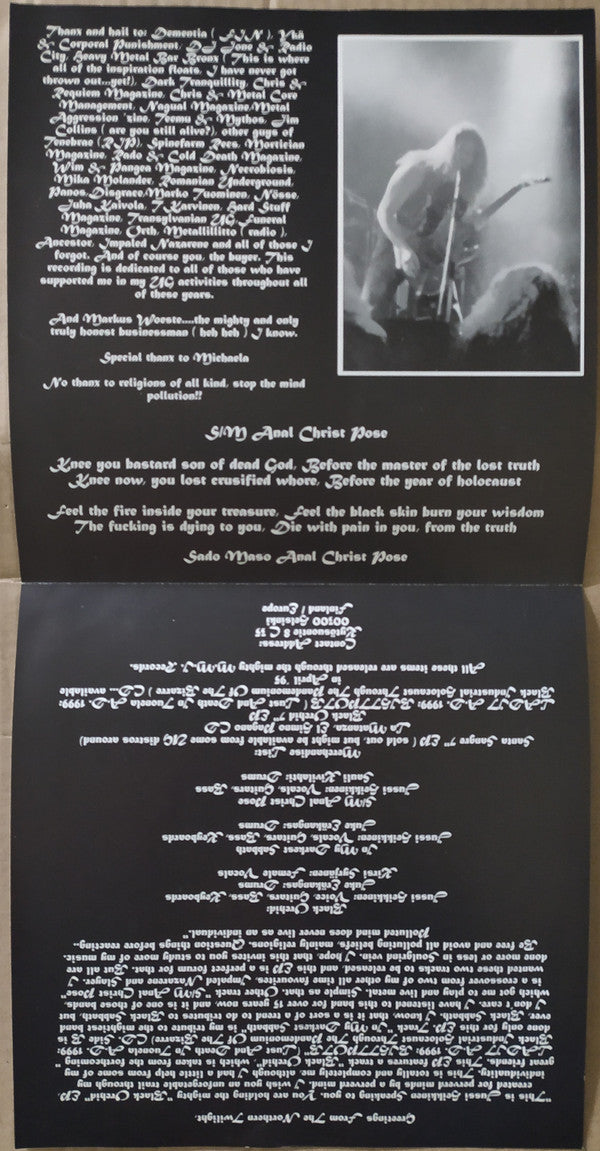 Thanx and hail to: Dementia ( FIN ), Yhä
& Corporal Punishment, DJ Tone & Radio
City, Heavy Metal Bar Bronx ( This is where
all of the inspiration floats, I have never got
thrown out...yet!), Dark Tranquillity, Chris &
Requiem Magazine, Chris & Metal Core
Management, Nagual Magazine/Metal
Aggression 'zine, Teemu & Mythos, Jim
Collins ( are you still alive?), other guys of
Tenebrae (RIP), Spinefarm Recs, Mortician
Magazine, Rado & Cold Death Magazine,
Wim & Pangea Magazine, Necrobiosis,
Mika Molander, Romanian Underground,
Panos, Disgrace/Marko Tuominen, Nösse,
Juha Kaivola, T. Karvinen, Hard Stuff
Magazine, Transylvanian UG, Funeral
Magazine, Orth, Metallilitto ( radio ),
Ancestor, Impaled Nazarene and all of those I
forgot. And of course you, the buyer. This
recording is dedicated to all of those who have
supported me in my UG activities throughout all
of these years.
And Markus Woeste....the mighty and only
truly honest businessman ( heh heh ) I know.
Special thanx to Michaela
No thanx to religions of all kind, stop the mind
pollution!!
S/M Anal Christ Pose
Knee you bastard son of dead God, Before the master of the lost truth
Knee now, you lost crusified whore, Before the year of holocaust
Feel the fire inside your treasure, Feel the black skin burn your wisdom
The fucking is dying to you, Die with pain in you, from the truth
Sado Maso Anal Christ Pose
Greetings From The Northern Twilight.
"This is Jussi Heikkinen Speaking to you. You are holding the mighty "Black Orchid" EP,
created for perverted minds by a perverted mind. I wish you an unforgettable trail through my
individuality. This is totally and completely me, although I had a little help from some of my
great friends. This EP features a track "Black Orchid" which is taken from the forthcoming
( Lust And Death In Tuonela A.D. 1999:
Black Industrial Holocaust Through The Pandemonium Of The Bizarre) CD. Side B is
done only for this EP. Track "In My Darkest Sabbath" is my tribute to the mightiest band
ever, Black Sabbath. I know, that it is a sort of a trend to do tributes to Black Sabbath, but
I don't care. I have listened to this band for over 15 years now, and it is one of those bands,
which got me to play and live metal. Simple as that. Other track "S/M Anal Christ Pose"
is a crossover from two of my older all time favourites; Impaled Nazarene and Slayer. I
wanted these two tracks to be released, and this EP is a perfect forum for that. But all are
done more or less in Soulgrind vein. I hope, that this invites you to study more of my music.
Be free and avoid all polluting beliefs, mainly religions. Question things before reacting...
Polluted mind does never live as an individual."
Black Orchid:
Jussi Heikkinen: Voice, Guitars, Bass, Keyboards
Juke Eräkangas: Drums
Kirsi Syrjänen: Female Vocals
In My Darkest Sabbath
Jussi Heikkinen: Vocals, Guitars, Bass, Keyboards
Juke Eräkangas: Drums
S/M Anal Christ Pose
Jussi Heikkinen: Vocals, Guitars, Bass
Sauli Kivilahti: Drums
Merchandise List:
Santa Sangre 7" EP ( sold out, but might be available from some UG distros around)
La Matanza, El Himno Pagano CD
Black Orchid 7" EP
( Lust And Death In Tuonela A.D. 1999:
Black Industrial Holocaust Through The Pandemonium Of The Bizarre ) CD... available
in April '95
All these items are released through the mighty M.M.I. Records.
Contact Address:
8 C 35
00300 Helsinki
Finland / Europe